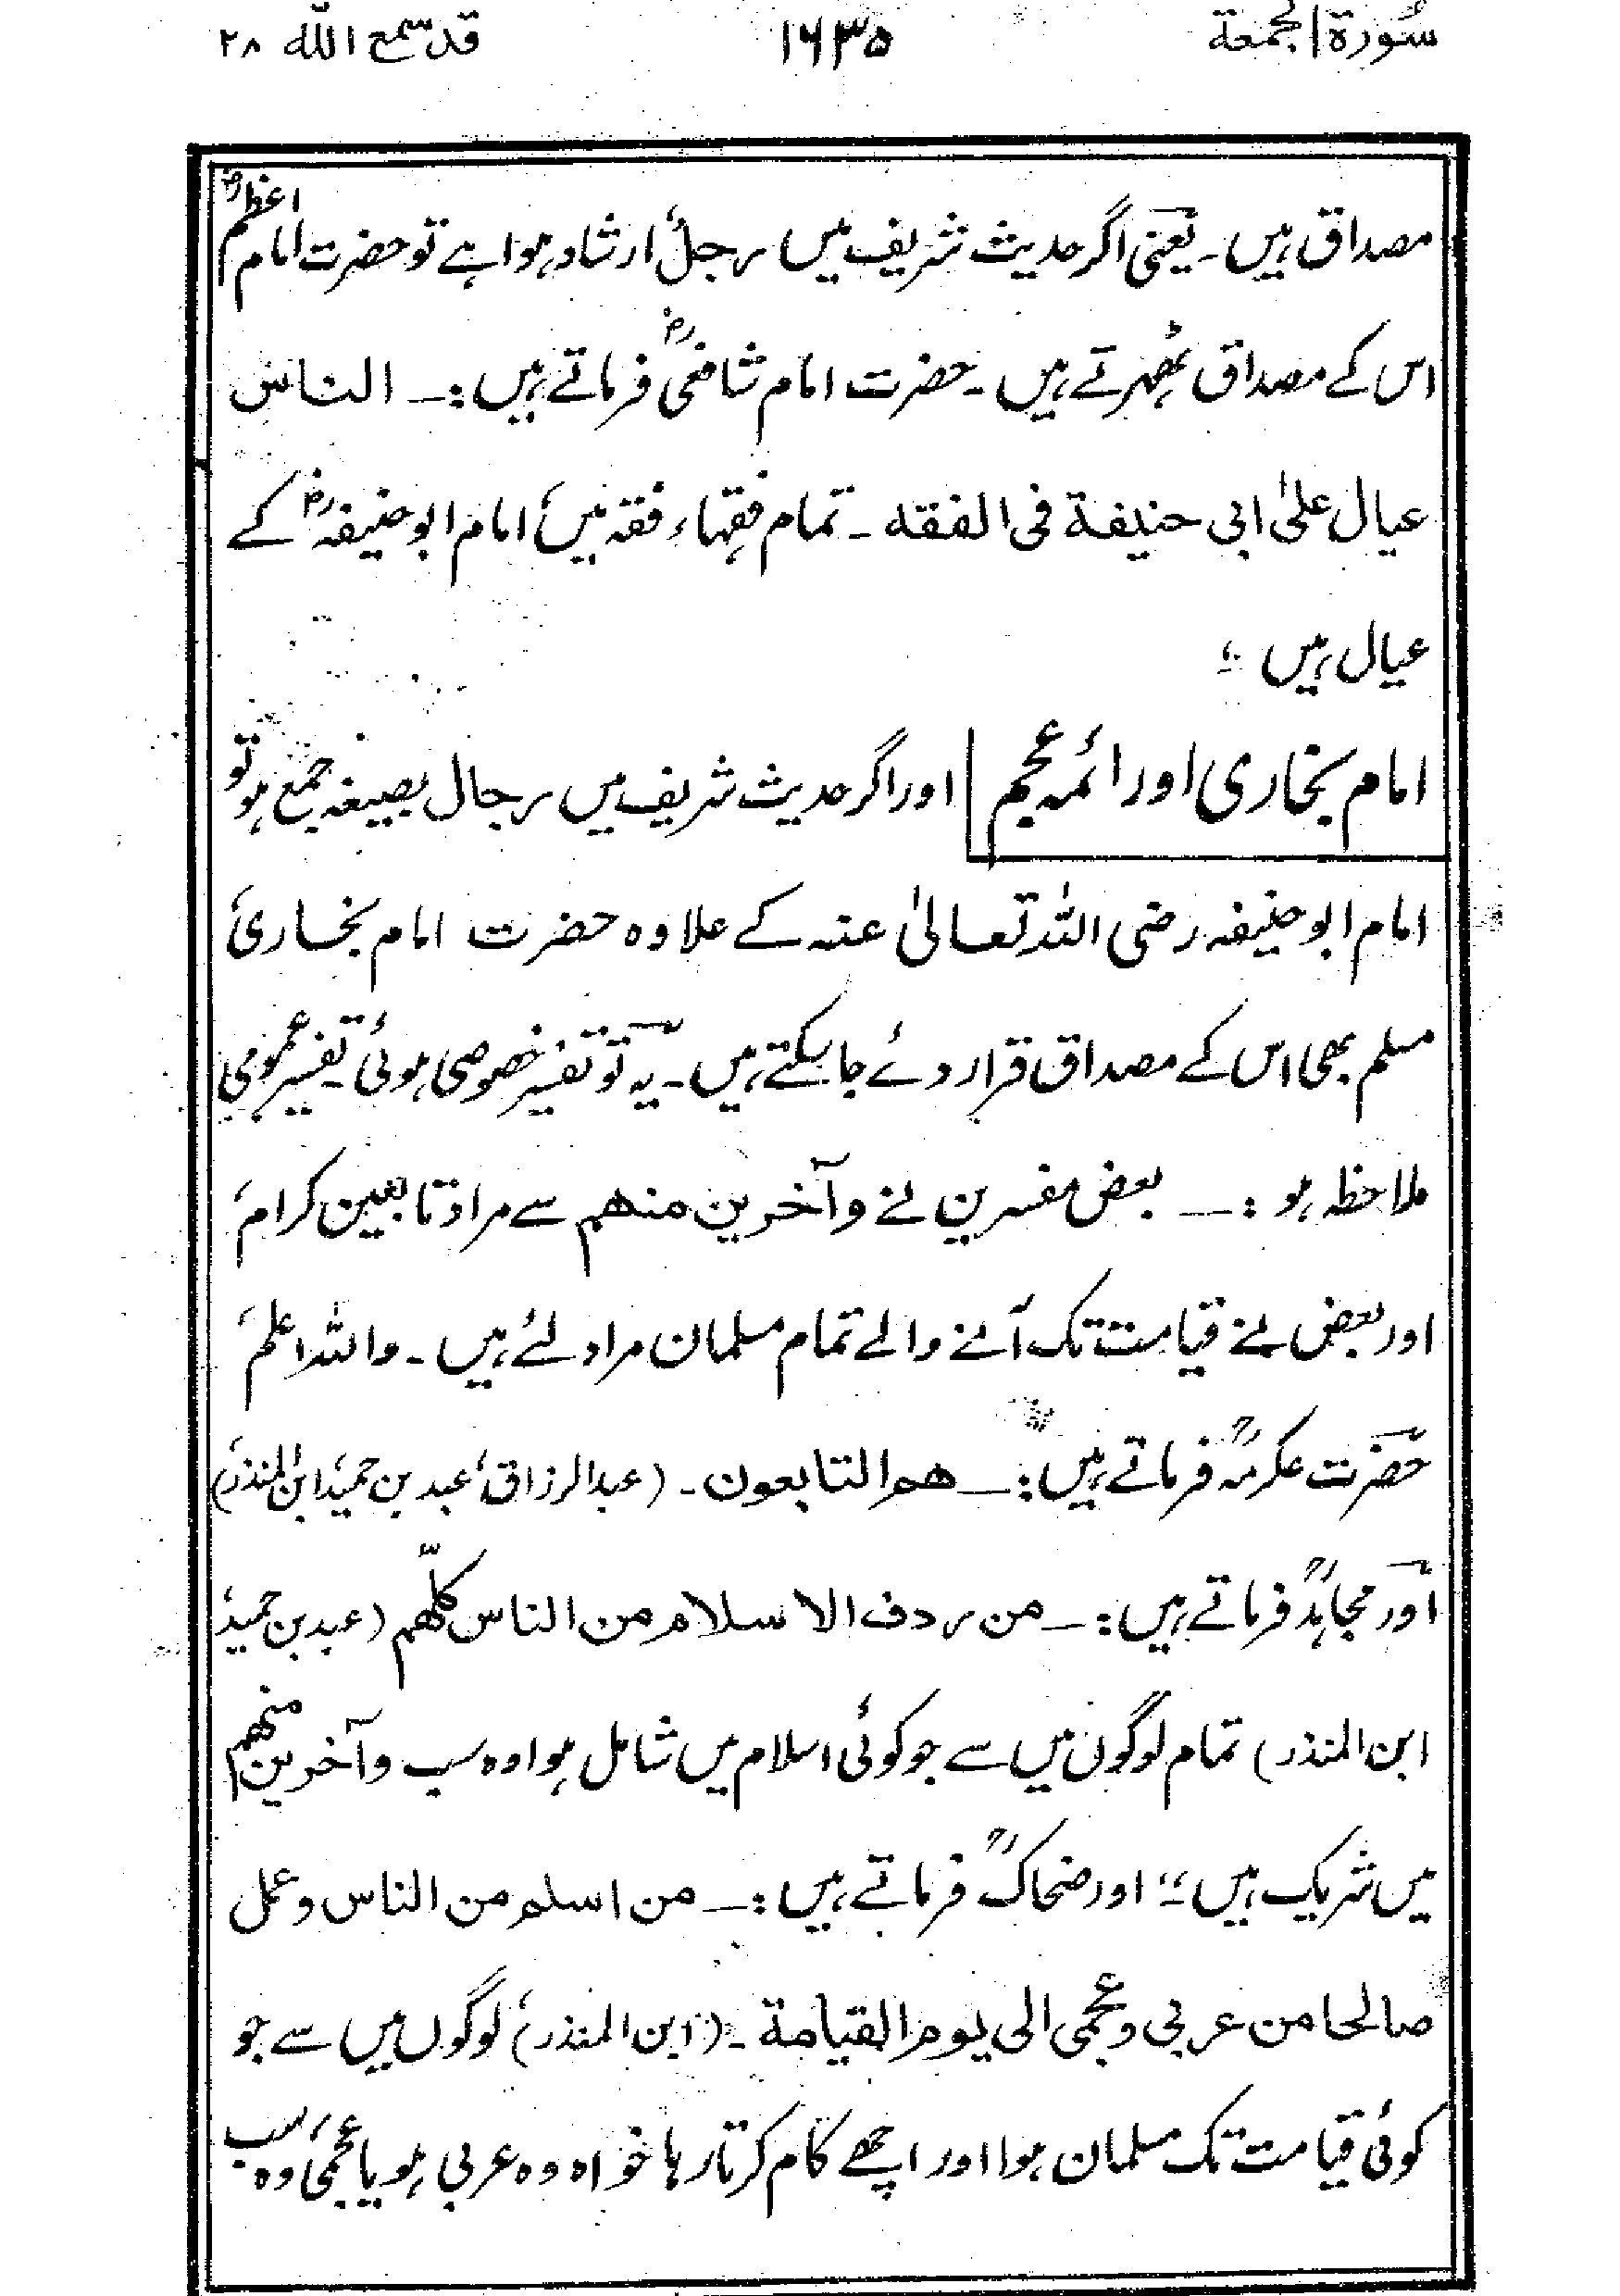 سُورة الجمعة ۱۶۳۵ قد سمع اللّٰه ۲۸
مصداق ہیں۔ یعنی اگر حدیث شریف میں رجلٌ ارشاد ہوا ہے تو حضرت امام اعظمؒ
اس کے مصداق ٹھہرتے ہیں۔ حضرت امام شافعیؒ فرماتے ہیں:۔ الناس
عیال علیٰ ابی حنیفة فی الفقه۔ تمام فقہاء فقہ میں، امام ابو حنیفہؒ کے
عیال ہیں ؛
امام بخاری اور ائمہ عجم اور اگر حدیث شریف میں رجال بصیغہ جمع ہو تو
امام ابو حنیفہ رضی اللہ تعالیٰ عنہ کے علاوہ حضرت امام بخاری،
مسلم بھی اس کے مصداق قرار دئے جا سکتے ہیں۔ یہ تو تفسیر خصوصی ہوئی۔ تفسیر عمومی
ملاحظہ ہو:۔ بعض مفسرین نے وآخرین منهم سے مراد تابعین کرام،
اور بعض نے قیامت تک آنے والے تمام مسلمان مراد لئے ہیں۔ واللہ اعلم،
حضرت عکرمہؒ فرماتے ہیں:۔ هم التابعون۔ (عبدالرزاق، عبد بن حمید، ابن المنذر)
اور مجاہدؒ فرماتے ہیں:۔ من ردف الاسلام من الناس کلّهم (عبد بن حمید،
ابن المنذر) تمام لوگوں میں سے جو کوئی اسلام میں شامل ہوا وہ سب وآخرین منهم
میں شریک ہیں ؛ اور ضحاکؒ فرماتے ہیں:۔ من اسلم من الناس وعمل
صالحا من عربی وعجمی الی یوم القیامة۔ (ابن المنذر) لوگوں میں سے جو
کوئی قیامت تک مسلمان ہوا اور اچھے کام کرتا رہا خواہ وہ عربی ہو یا عجمی، وہ سب